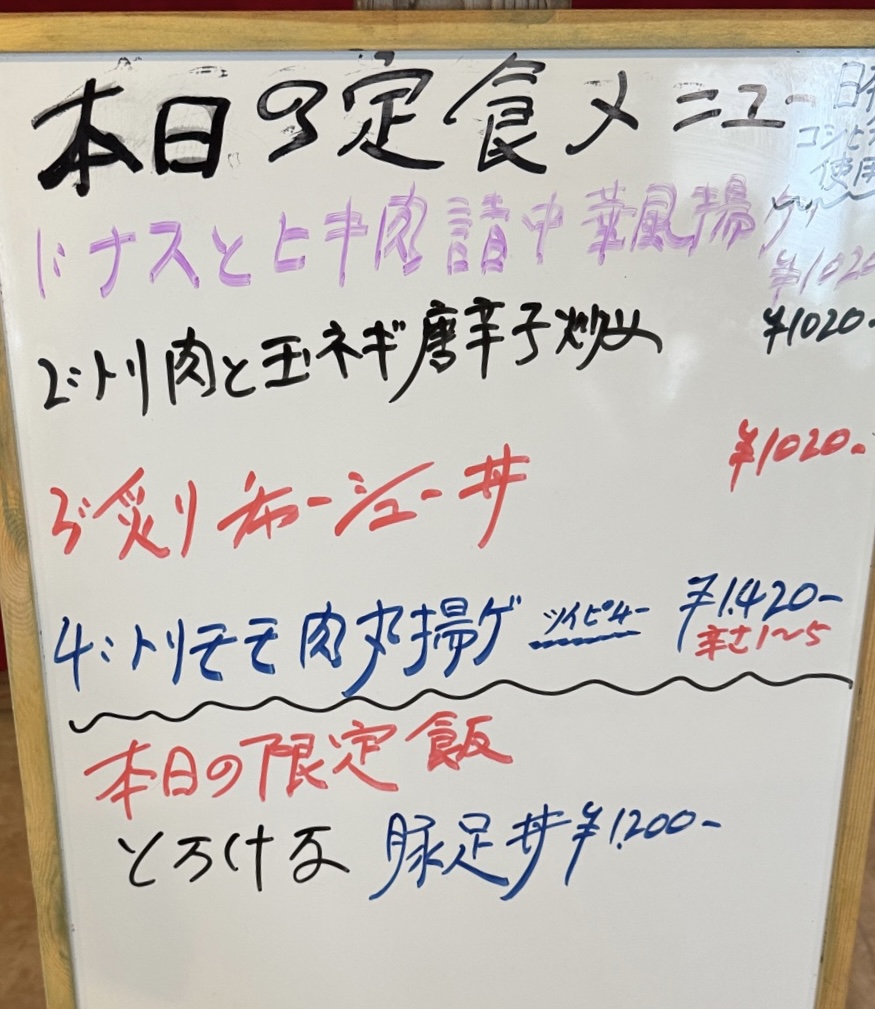 本日の定食メニュー
コシヒ
使用
1:ナスとヒキ肉詰中華風揚ゲ
¥1020
2:トリ肉と玉ネギ唐辛子炒め ¥1020-
3:炙りチャーシュー丼 ¥1020-
4:トリモモ肉丸揚ゲ ツイピルー ¥1.420-
辛さ1〜5
本日の限定飯
とろける 豚足丼 ¥1.200-